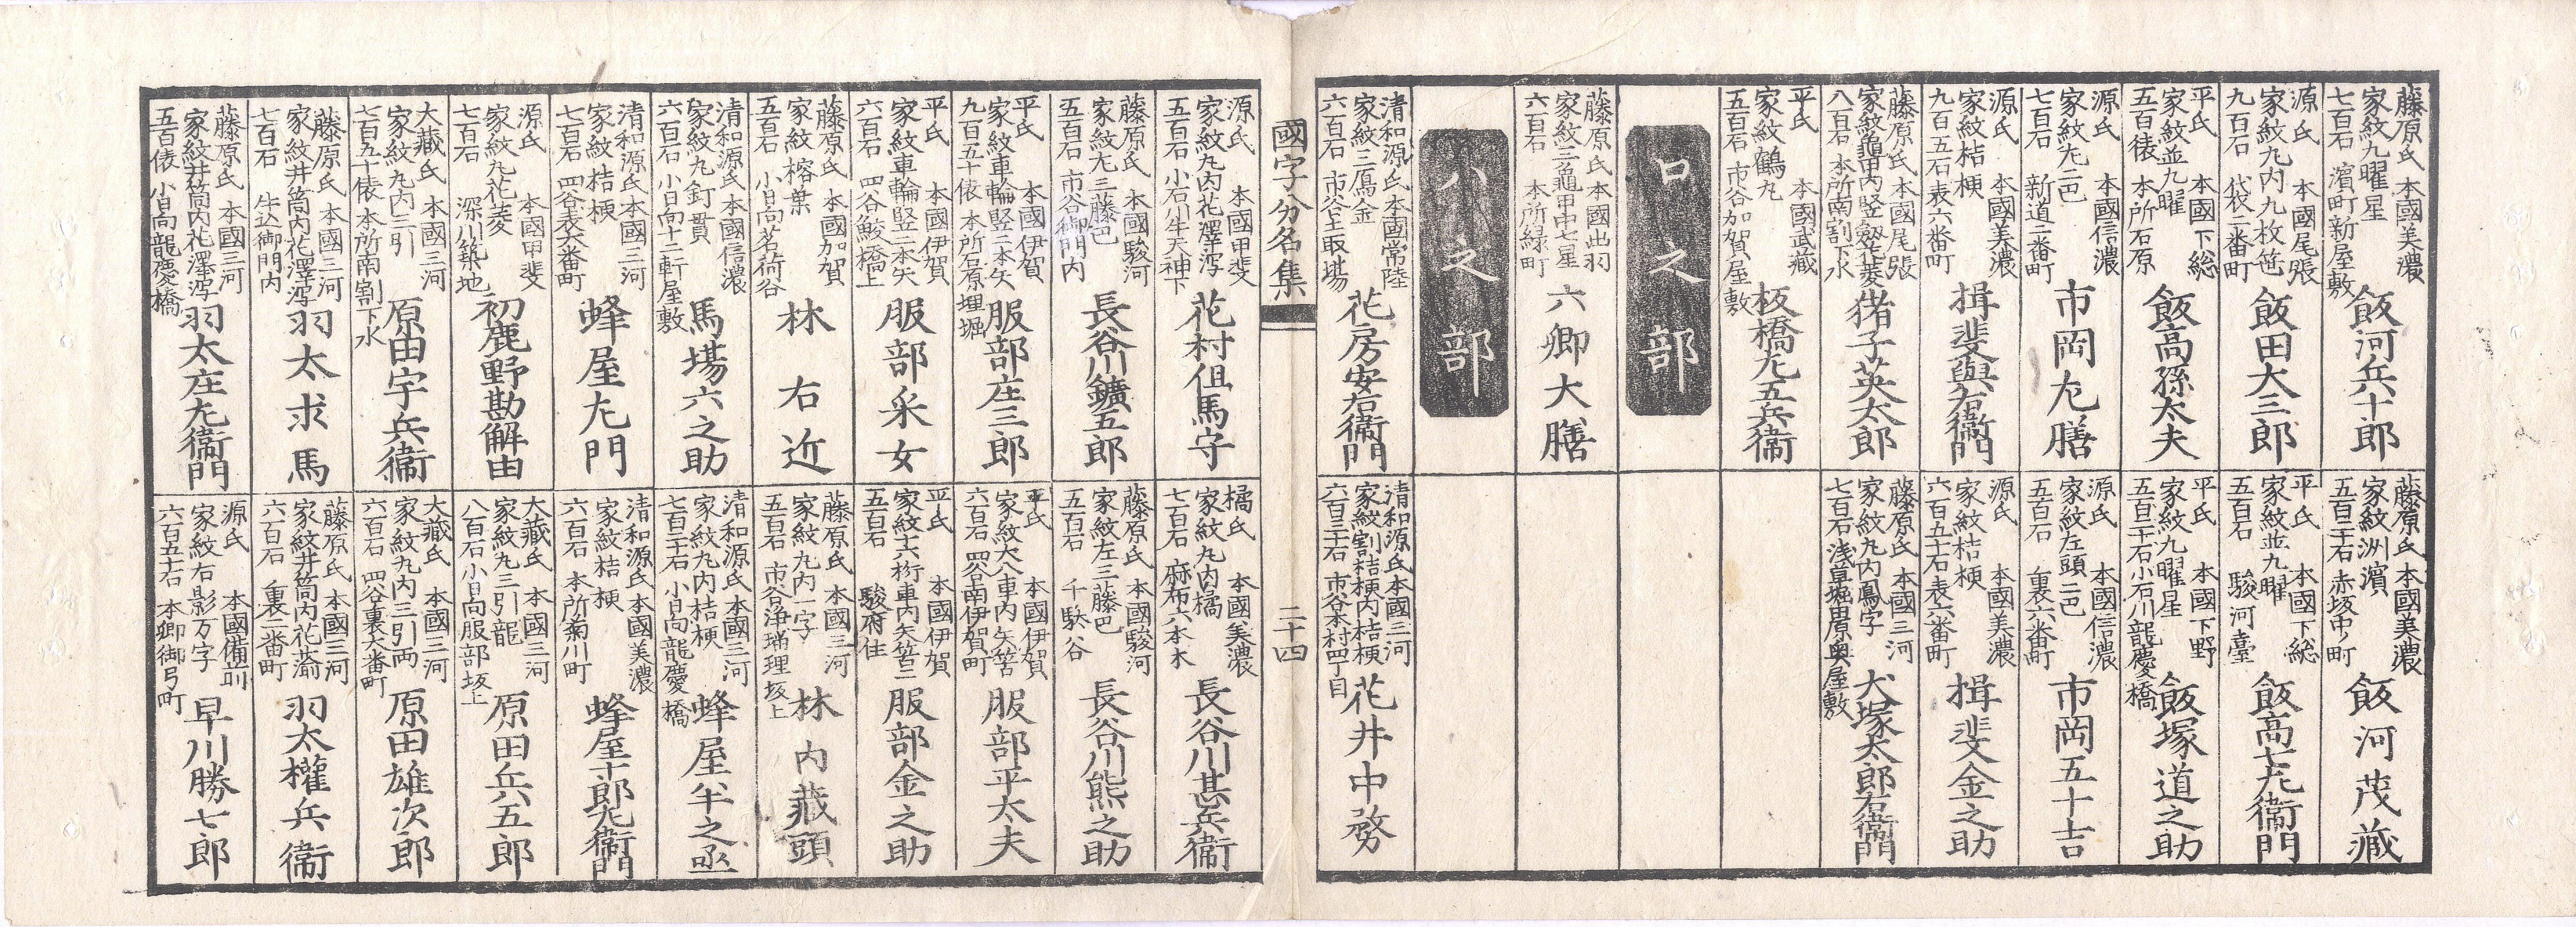 藤原氏 本國美濃
家紋九曜星
七百石 濱町新屋敷
飯河兵十郎
源氏 本國尾張
家紋丸内九枚笹
九百石 袋二番町
飯田大三郎
平氏 本國下総
家紋並九曜
五百俵 本所石原
飯高孫太夫
源氏 本國信濃
家紋左二巴
七百石 新道二番町
市岡左膳
源氏 本國美濃
家紋桔梗
九百五石 表六番町
揖斐與右衛門
藤原氏 本國尾張
家紋龜甲内竪劔花菱
八百石 本所南割下水
猪子英太郎
平氏 本國武藏
家紋鶴丸
五百石 市谷加賀屋敷
板橋左五兵衛
ロ之部
藤原氏 本國出羽
家紋三龜甲中七星
六百石 本所緑町
六郷大膳
ハ之部
清和源氏 本國常陸
家紋三鴈金
六百石 市谷土取場
花房安右衛門
藤原氏 本國美濃
家紋洲濱
五百三十石 赤坂中ノ町
飯河茂藏
平氏 本國下総
家紋並九曜
五百石 駿河臺
飯高七左衛門
平氏 本國下野
家紋九曜星
五百三十石 小石川龍慶橋
飯塚道之助
源氏 本國信濃
家紋左頭二巴
五百石 裏六番町
市岡五十吉
源氏 本國美濃
家紋桔梗
六百五十石 表六番町
揖斐金之助
藤原氏 本國三河
家紋丸内鳳字
七百石 浅草堀田原奥屋敷
犬塚太郎右衛門
清和源氏 本國三河
家紋割桔梗内桔梗
六百三十石 市谷本村四丁目
花井中務
國字分名集
二十四
源氏 本國甲斐
家紋丸内花澤瀉
五百石 小石川牛天神下
花村但馬守
藤原氏 本國駿河
家紋左三藤巴
五百石 市谷御門内
長谷川鑛五郎
平氏 本國伊賀
家紋車輪竪二本矢
九百五十俵 本所石原埋堀
服部庄三郎
平氏 本國伊賀
家紋車輪竪二本矢
六百石 四谷鮫橋上
服部釆女
藤原氏 本國加賀
家紋榕葉
五百石 小日向茗荷谷
林右近
清和源氏 本國信濃
家紋丸釘貫
六百石 小日向十二軒屋敷
馬場六之助
清和源氏 本國三河
家紋桔梗
七百石 四谷表大番町
蜂屋左門
源氏 本國甲斐
家紋丸花菱
七百石 深川築地
初鹿野勘解由
大藏氏 本國三河
家紋丸内三引
七百五十俵 本所南割下水
原田宇兵衛
藤原氏 本國三河
家紋井筒内花澤瀉
七百石 牛込御門内
羽太求馬
藤原氏 本國三河
家紋井筒内花澤瀉
五百俵 小日向龍慶橋
羽太庄左衛門
橘氏 本國美濃
家紋丸内橘
七百石 麻布六本木
長谷川甚兵衛
藤原氏 本國駿河
家紋左三藤巴
五百石 千駄谷
長谷川熊之助
平氏 本國伊賀
家紋六八車内矢筈
六百石 四谷南伊賀町
服部平太夫
平氏 本國伊賀
家紋十六桁車内矢筈二
五百石 駿府住
服部金之助
藤原氏 本國三河
家紋丸内一字
五百石 市谷浄瑠理坂上
林内藏頭
清和源氏 本國三河
家紋丸内桔梗
七百三十石 小日向龍慶橋
蜂屋半之丞
清和源氏 本國美濃
家紋桔梗
六百石 本所菊川町
蜂屋十郎左衛門
大藏氏 本國三河
家紋丸三引龍
八百石 小日向服部坂上
原田兵五郎
大藏氏 本國三河
家紋丸内三引両
六百石 四谷裏大番町
原田雄次郎
藤原氏 本國三河
家紋井筒内花瀉
六百石 裏二番町
羽太權兵衛
源氏 本國備前
家紋右影万字
六百五十石 本郷御弓町
早川勝七郎